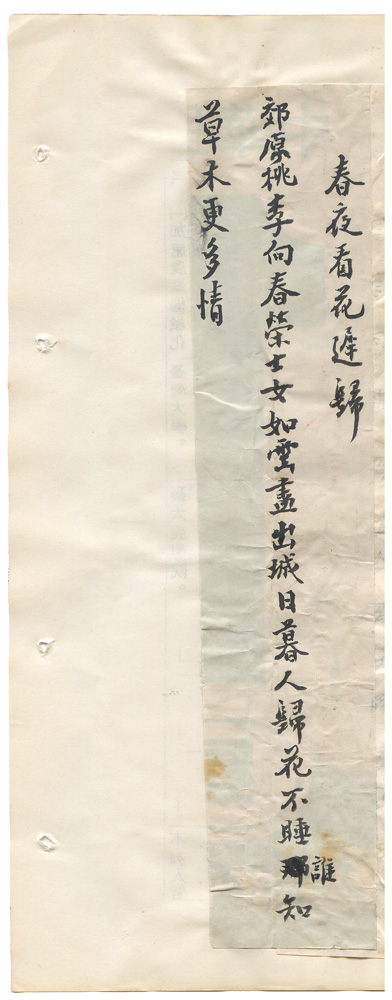 春夜看花遲歸
郊原桃李向春榮士女如雲盡出城日暮人歸花不睡誰知
草木更多情